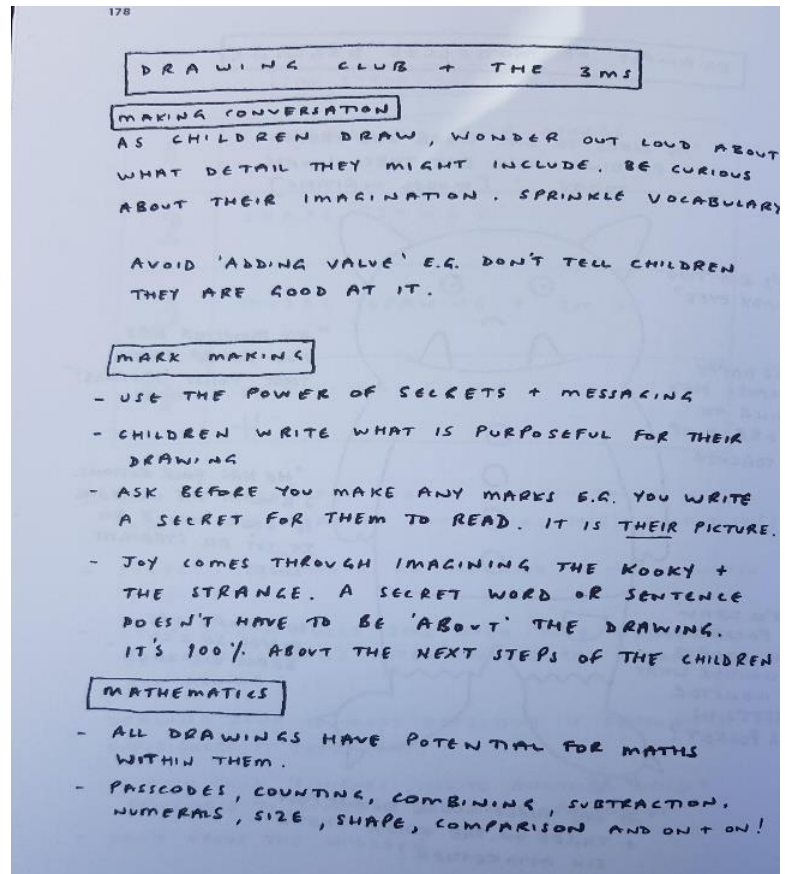 178
DRAWING CLUB + THE 3MS
MAKING CONVERSATION
AS CHILDREN DRAW, WONDER OUT LOUD ABOUT
WHAT DETAIL THEY MIGHT INCLUDE. BE CURIOUS
ABOUT THEIR IMAGINATION. SPRINKLE VOCABULARY
AVOID 'ADDING VALUE' E.G. DON'T TELL CHILDREN
THEY ARE GOOD AT IT.
MARK MAKING
- USE THE POWER OF SECRETS + MESSAGING
- CHILDREN WRITE WHAT IS PURPOSEFUL FOR THEIR
DRAWING
- ASK BEFORE YOU MAKE ANY MARKS E.G. YOU WRITE
A SECRET FOR THEM TO READ. IT IS THEIR PICTURE.
- JOY COMES THROUGH IMAGINING THE KOOKY +
THE STRANGE. A SECRET WORD OR SENTENCE
DOESN'T HAVE TO BE 'ABOUT' THE DRAWING.
IT'S 100% ABOUT THE NEXT STEPS OF THE CHILDREN
MATHEMATICS
- ALL DRAWINGS HAVE POTENTIAL FOR MATHS
WITHIN THEM.
- PASSCODES, COUNTING, COMBINING, SUBTRACTION.
NUMERALS, SIZE, SHAPE, COMPARISON AND ON + ON!